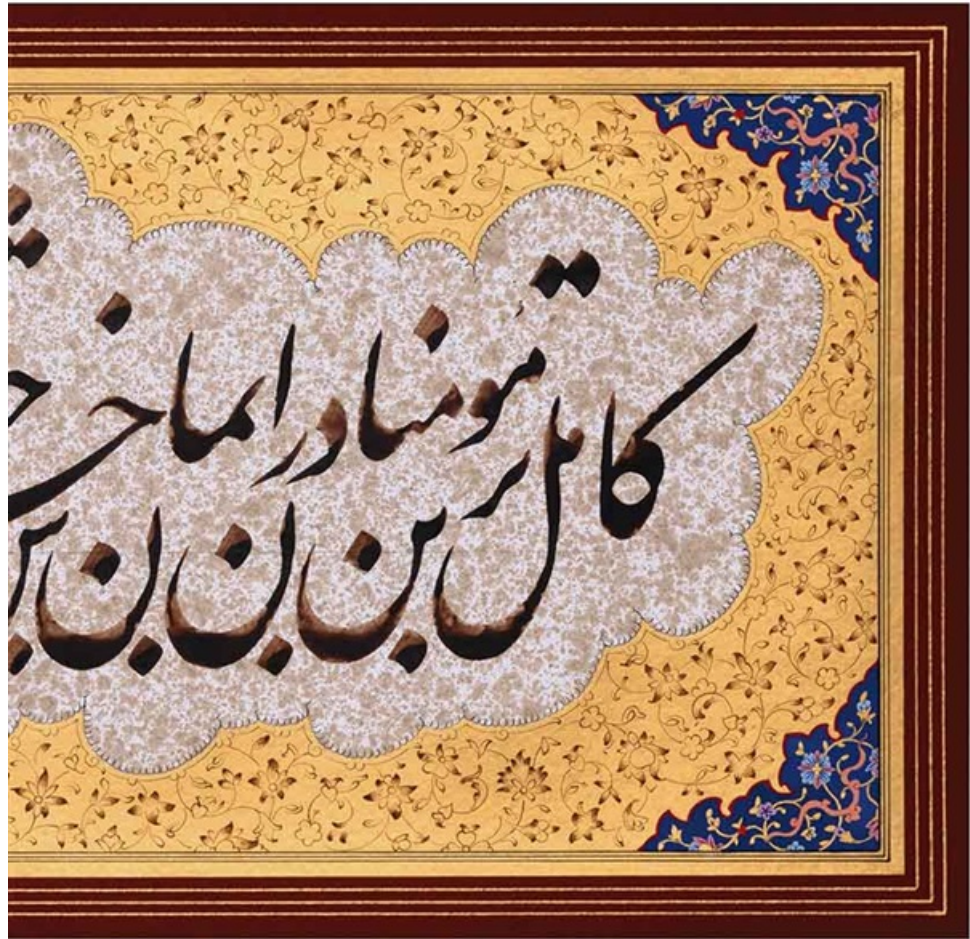 کامل ترین مؤمنان در ایمان